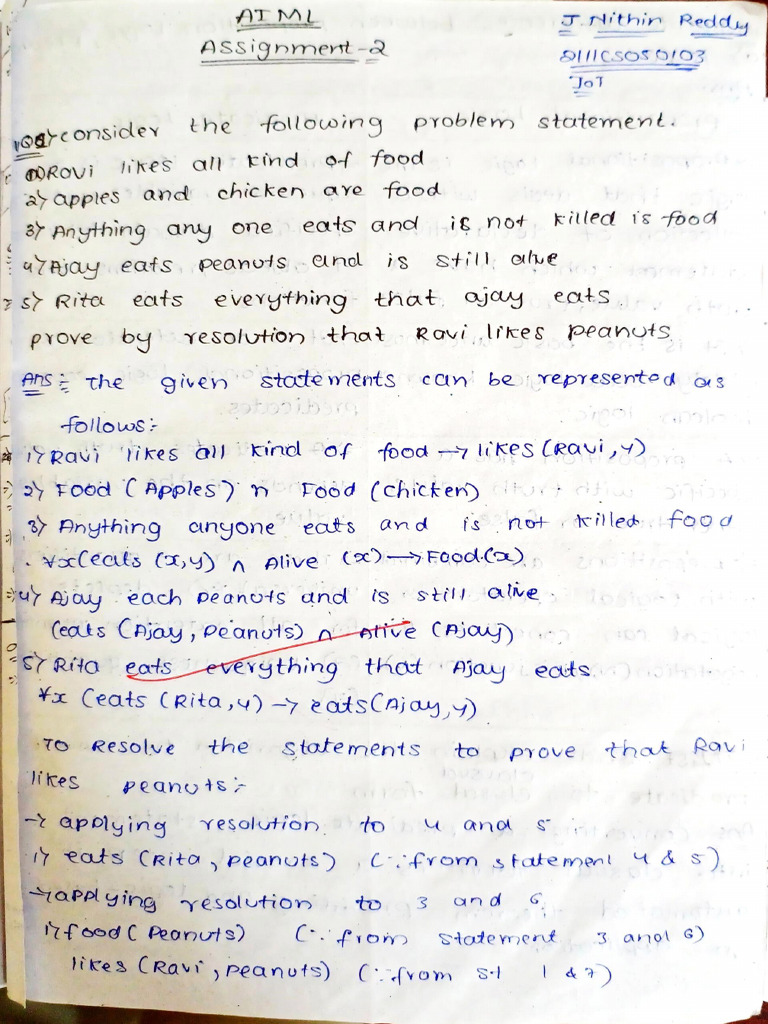 AIML
Assignment-2
J. Nithin Reddy
2111CS050103
IoT
1Q1) consider the following problem statement.
1) Ravi likes all kind of food
2) apples and chicken are food
3) Anything any one eats and is not killed is food
4) Ajay eats peanuts and is still alive
5) Rita eats everything that ajay eats
prove by resolution that Ravi likes peanuts
Ans:- The given statements can be represented as
follows:-
1) Ravi likes all kind of food → likes (Ravi, y)
2) Food (Apples) ∩ Food (chicken)
3) Anything anyone eats and is not killed food
∀x(eats (x,y) ∧ Alive (x) → Food(x)
4) Ajay each peanuts and is still alive
(eats (Ajay, peanuts) ∩ Alive (Ajay)
5) Rita eats everything that Ajay eats
∀x (eats (Rita, y) → eats(Ajay, y)
To Resolve the statements to prove that Ravi
likes peanuts:-
→ applying resolution to 4 and 5
1) eats (Rita, peanuts) (∵ from statement 4 & 5)
→ applying resolution to 3 and 6
1) food (Peanuts) (∵ from statement 3 and 6)
likes (Ravi, peanuts) (∵ from st 1 & 7)